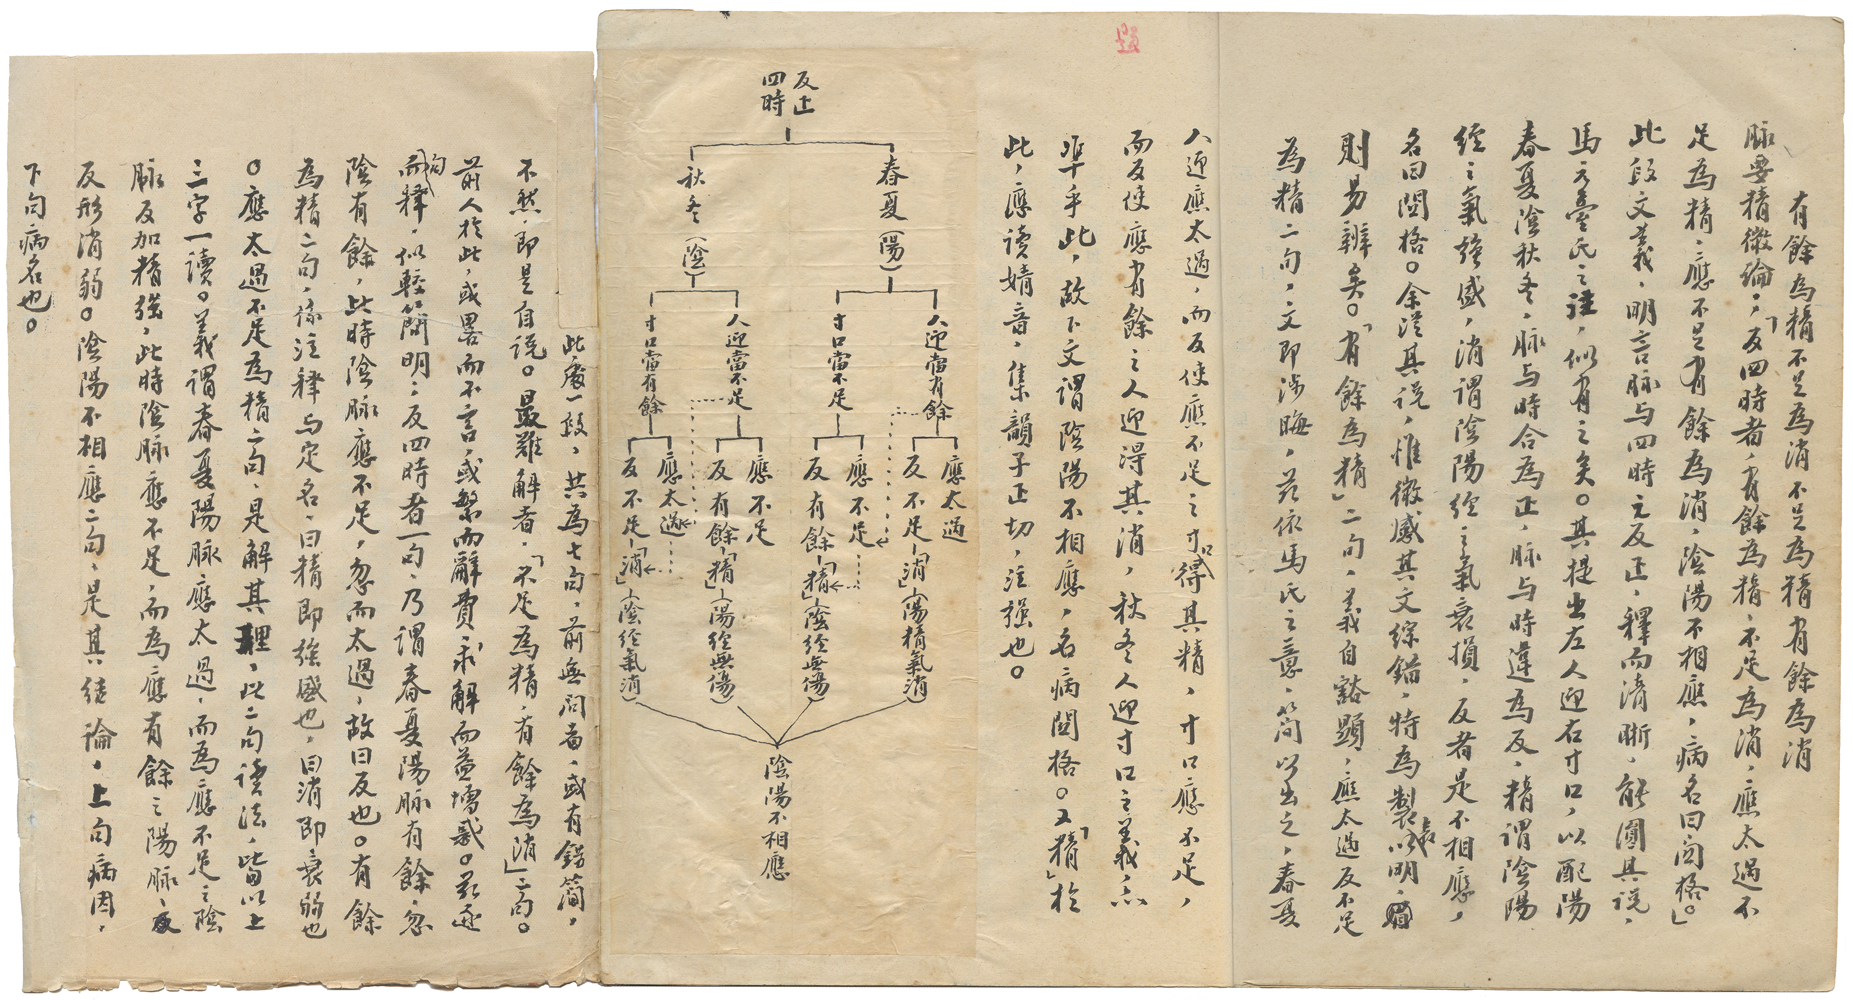 有餘為精不足為消不足為精有餘為消
脉要精微論，「反四時者，有餘為精，不足為消，應太過不
足為精，應不足有餘為消，陰陽不相應，病名曰関格。」
此段文義，明言脉与四時之反正，釋而清晰，能圓其說，
馬元臺氏之註，似有之矣。其提出左人迎右寸口，以配陽
春夏陰秋冬，脉与時合為正，脉与時違為反，精謂陰陽
經之氣強盛，消謂陰陽經之氣衰損，反者是不相應，
名曰関格。余從其說，惟微感其文綜錯，特為製表以明，
則易辨矣。「有餘為精」二句，義自豁顯，應太過反不足
為精二句，文即涉晦，茲依馬氏之意，簡以出之，春夏
人迎應太過，而反使應不足之寸口得其精，寸口應不足，
而反使應有餘之人迎得其消，秋冬人迎寸口之義，亦
準乎此，故下文謂陰陽不相應，名病関格。又「精」於
此，應读婧音，集韻子正切，注强也。
題
反正
四時
春夏（陽）
秋冬（陰）
人迎當有餘
寸口當不足
人迎當不足
寸口當有餘
應太過
反不足－「消」（陽精氣消）
應不足
反有餘－「精」（陰經無傷）
應不足
反有餘－「精」（陽經無傷）
應太過
反不足－「消」（陰經氣消）
陰陽不相應
此處一段，共為七句，前無問者，或有錯簡，
不然，即是自說。最難解者，「不足為精，有餘為消」二句。
前人於此，或畧而不言，或繁而辭費，求解而益增惑。茲逐
句而釋，似較簡明；反四時者一句，乃謂春夏陽脉有餘，忽
陰有餘，此時陰脉應不足，忽而太過，故曰反也。有餘
為精二句，係注釋与定名，曰精即強盛也，曰消即衰弱也
。應太過不足為精二句，是解其理，此二句读法，皆以上
三字一讀。義謂春夏陽脉應太過，而為應不足之陰
脉反加精强，此時陰脉應不足，而為應有餘之陽脉，
反形消弱。陰陽不相應二句，是其結論，上句病因，
下句病名也。